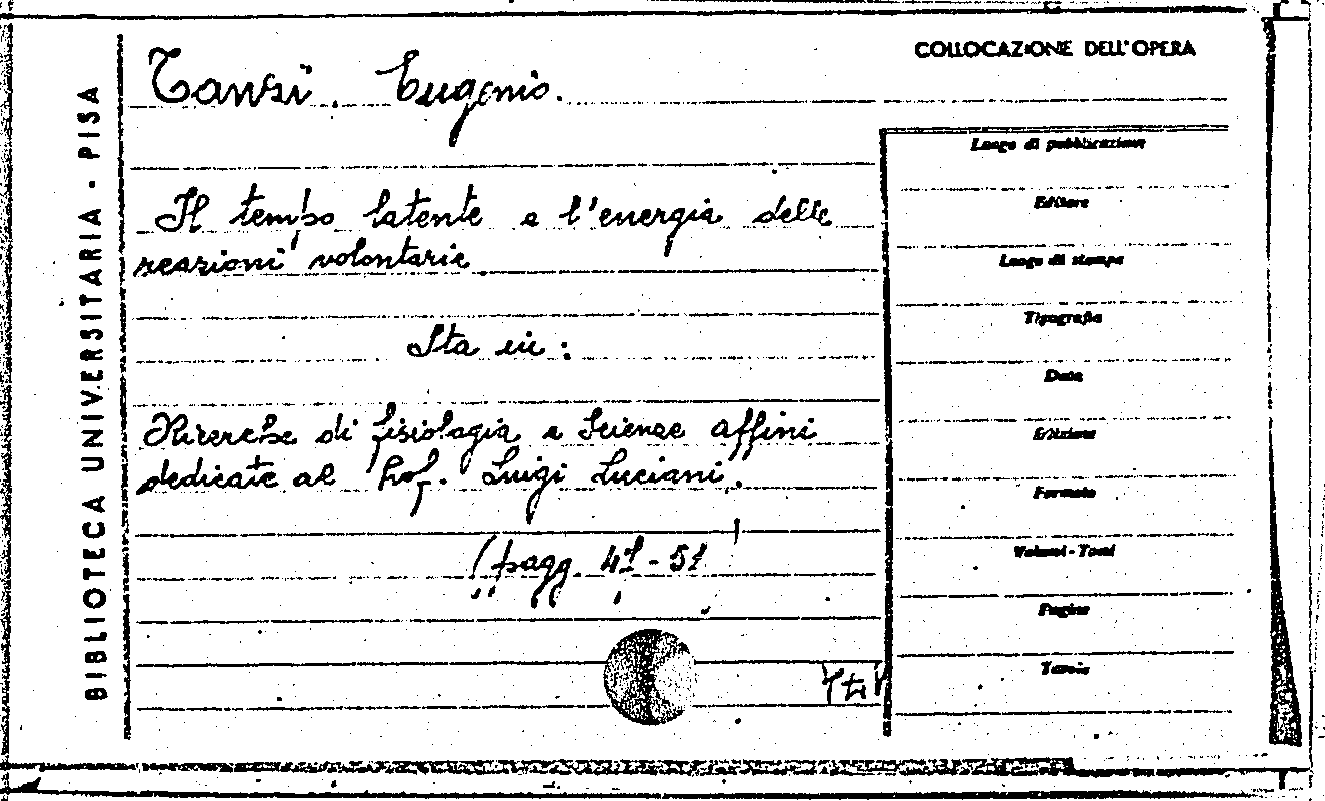 BIBLIOTECA UNIVERSITARIA - PISA
COLLOCAZIONE DELL'OPERA
Tanzi. Eugenio.
Il tempo latente e l'energia delle
reazioni volontarie
Sta in:
Ricerche di fisiologia e Scienze affini
dedicate al Prof. Luigi Luciani.
(pagg. 41-51
Luogo di pubblicazione
Editore
Luogo di stampa
Tipografia
Data
Edizione
Formato
Volumi - Tomi
Pagine
Tavole